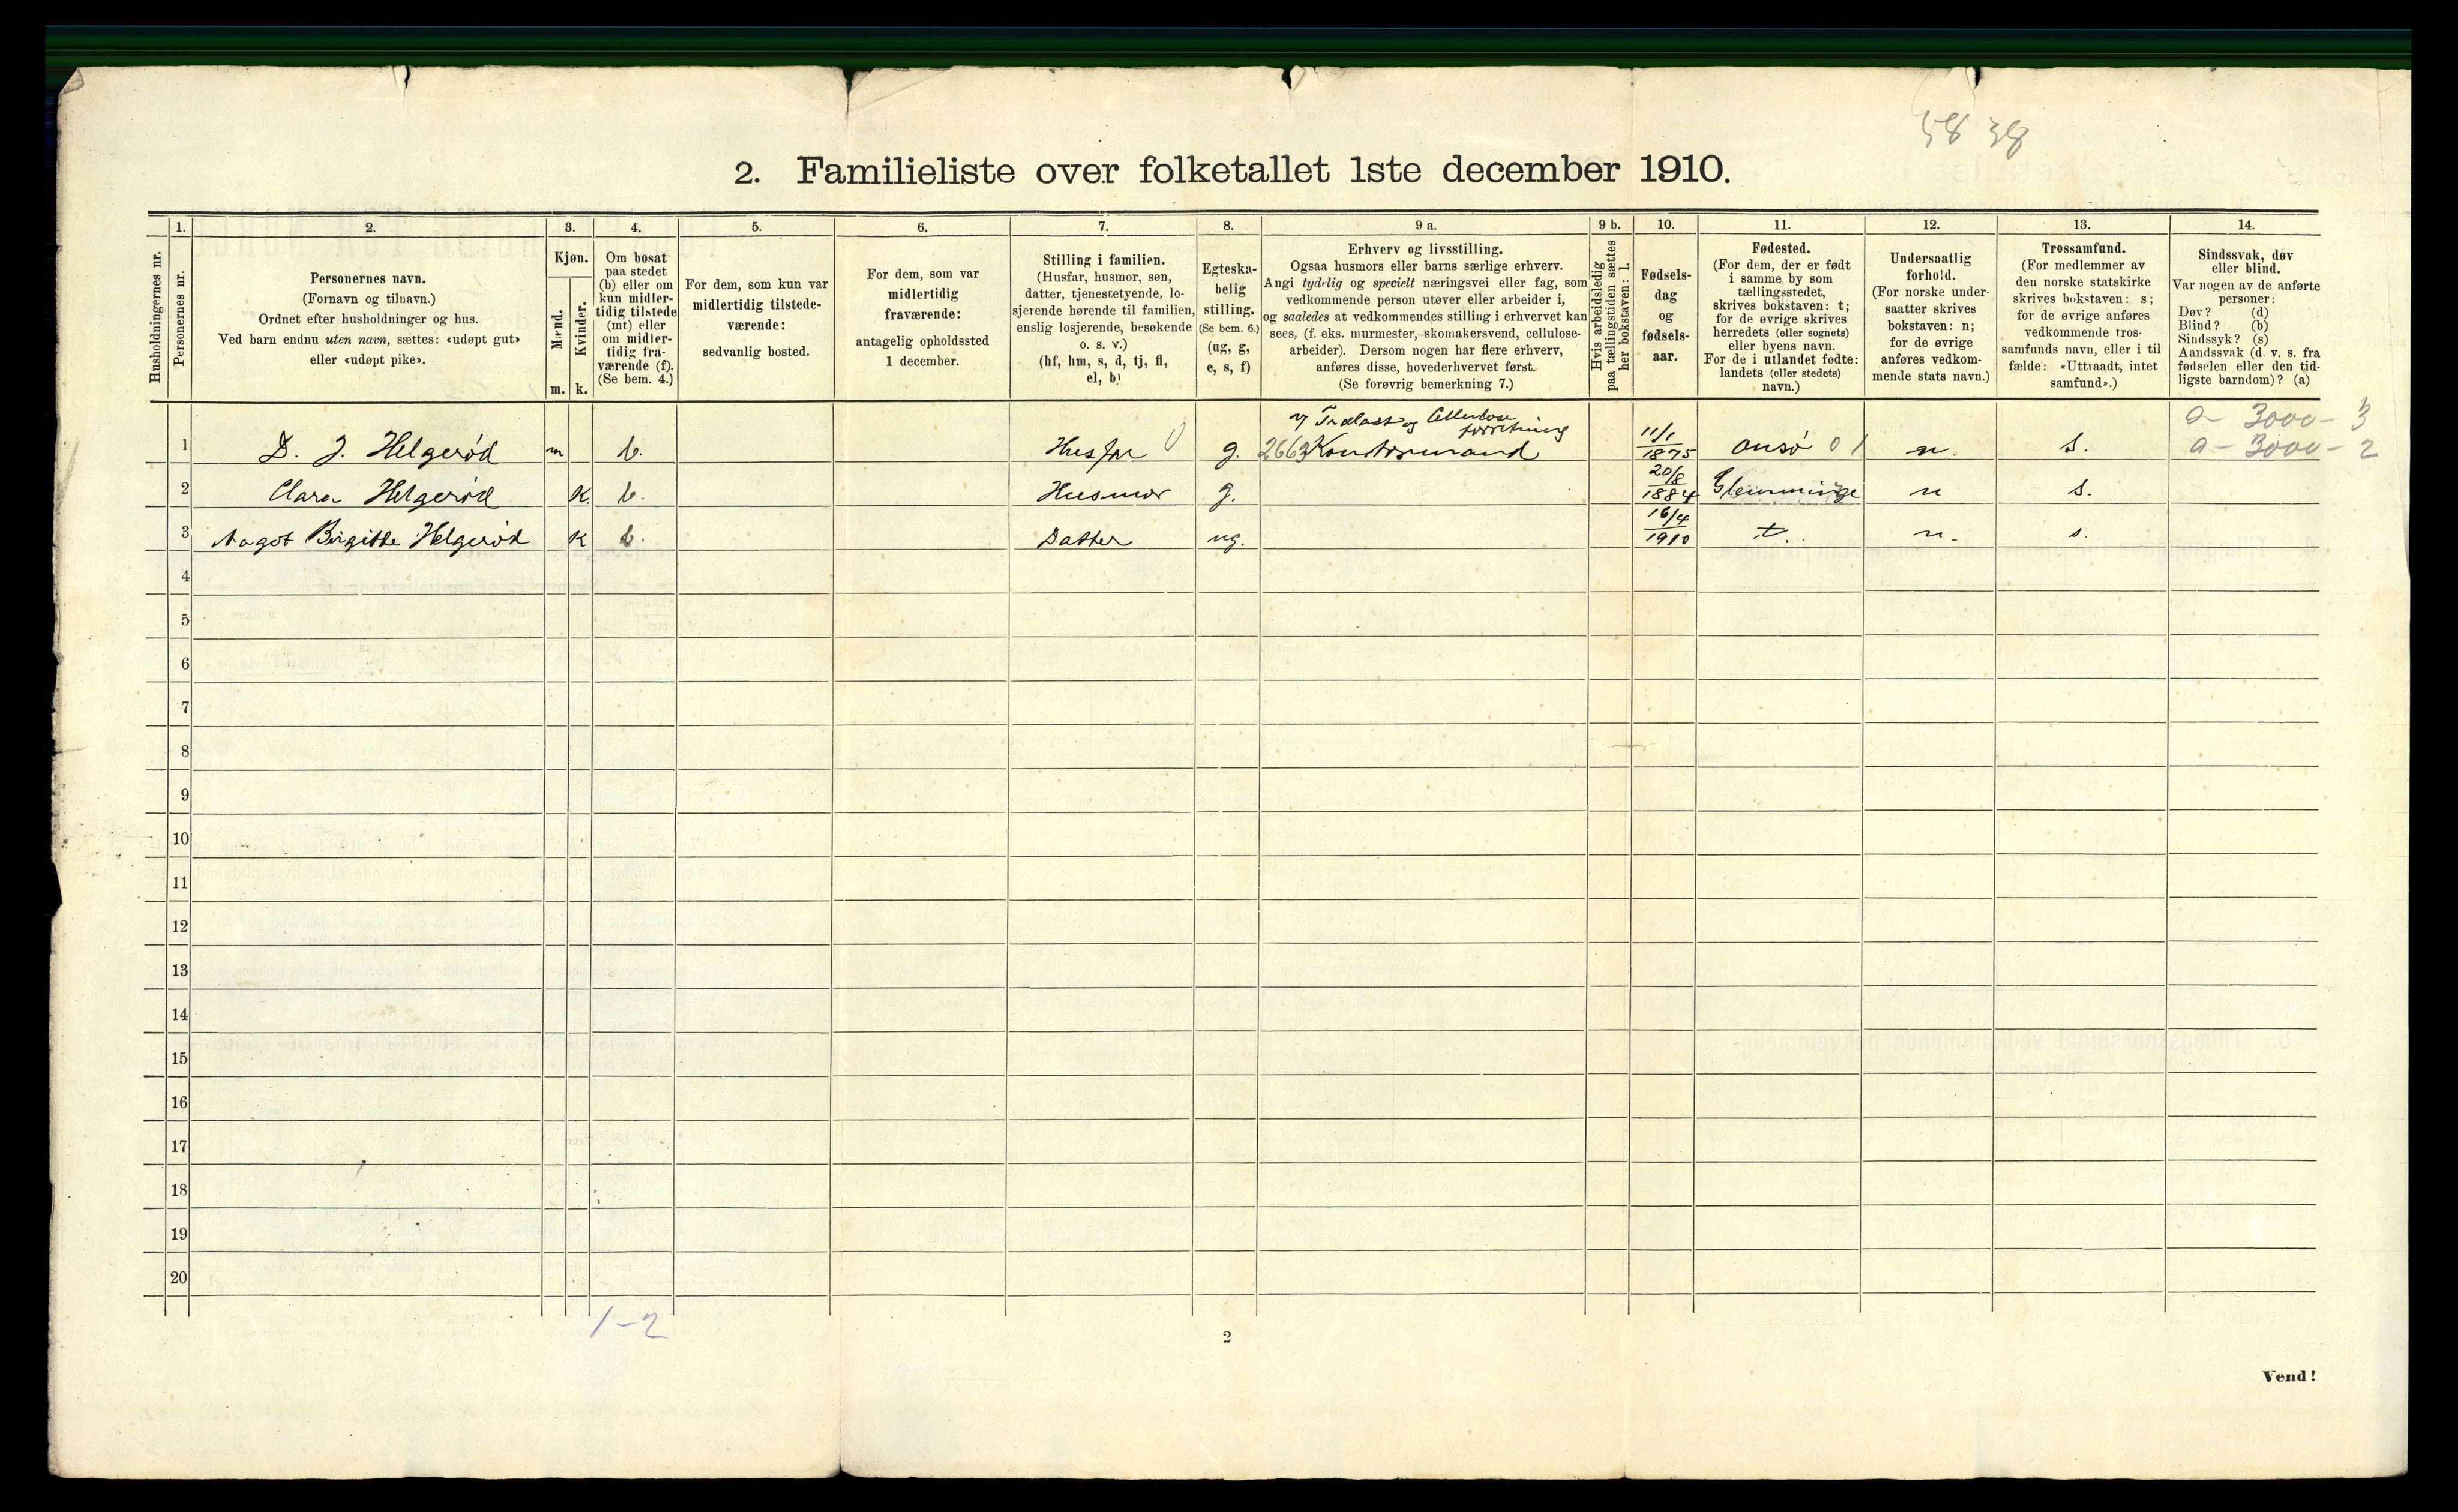 58 38
2. Familieliste over folketallet 1ste december 1910.
Husholdningernes nr.
1.
Personernes nr.
2.
Personernes navn.
(Fornavn og tilnavn.)
Ordnet efter husholdninger og hus.
Ved barn endnu uten navn, sættes: «udøpt gut»
eller «udøpt pike».
3.
Kjøn.
Mænd.
m.
Kvinder.
k.
4.
Om bosat
paa stedet
(b) eller om
kun midler-
tidig tilstede
(mt) eller
om midler-
tidig fra-
værende (f).
(Se bem. 4.)
5.
For dem, som kun var
midlertidig tilstede-
værende:
sedvanlig bosted.
6.
For dem, som var
midlertidig
fraværende:
antagelig opholdssted
1 december.
7.
Stilling i familien.
(Husfar, husmor, søn,
datter, tjenestetyende, lo-
sjerende hørende til familien,
enslig losjerende, besøkende
o. s. v.)
(hf, hm, s, d, tj, fl,
el, b)
8.
Egteska-
belig
stilling.
(Se bem. 6.)
(ug, g,
e, s, f)
9 a.
Erhverv og livsstilling.
Ogsaa husmors eller barns særlige erhverv.
Angi tydelig og specielt næringsvei eller fag, som
vedkommende person utøver eller arbeider i,
og saaledes at vedkommendes stilling i erhvervet kan
sees, (f. eks. murmester, skomakersvend, cellulose-
arbeider). Dersom nogen har flere erhverv,
anføres disse, hovederhvervet først.
(Se forøvrig bemerkning 7.)
9 b.
Hvis arbeidsledig
paa tællingstiden sættes
her bokstaven: l.
10.
Fødsels-
dag
og
fødsels-
aar.
11.
Fødested.
(For dem, der er født
i samme by som
tællingsstedet,
skrives bokstaven: t;
for de øvrige skrives
herredets (eller sognets)
eller byens navn.
For de i utlandet fødte:
landets (eller stedets)
navn.)
12.
Undersaatlig
forhold.
(For norske under-
saatter skrives
bokstaven: n;
for de øvrige
anføres vedkom-
mende stats navn.)
13.
Trossamfund.
(For medlemmer av
den norske statskirke
skrives bokstaven: s;
for de øvrige anføres
vedkommende tros-
samfunds navn, eller i til
fælde: «Uttraadt, intet
samfund».)
14.
Sindssvak, døv
eller blind.
Var nogen av de anførte
personer:
Døv? (d)
Blind? (b)
Sindssyk? (s)
Aandssvak (d. v. s. fra
fødselen eller den tid-
ligste barndom)? (a)
v/ Trælast og Cellulose
forretning
a - 3000 - 3
1 D. J. Helgerød m b. Husfar 0 g. 2663 Kontormand 11/1 1875 Onsø 0 1 n. s. a - 3000 - 2
2 Clara Helgerød K. b. Husmor g. 20/8 1884 Glemminge n s.
3 Aagot Birgitte Helgerød K b. Datter ug. 16/4 1910 t. n. s.
4
5
6
7
8
9
10
11
12
13
14
15
16
17
18
19
20
1-2
2
Vend!